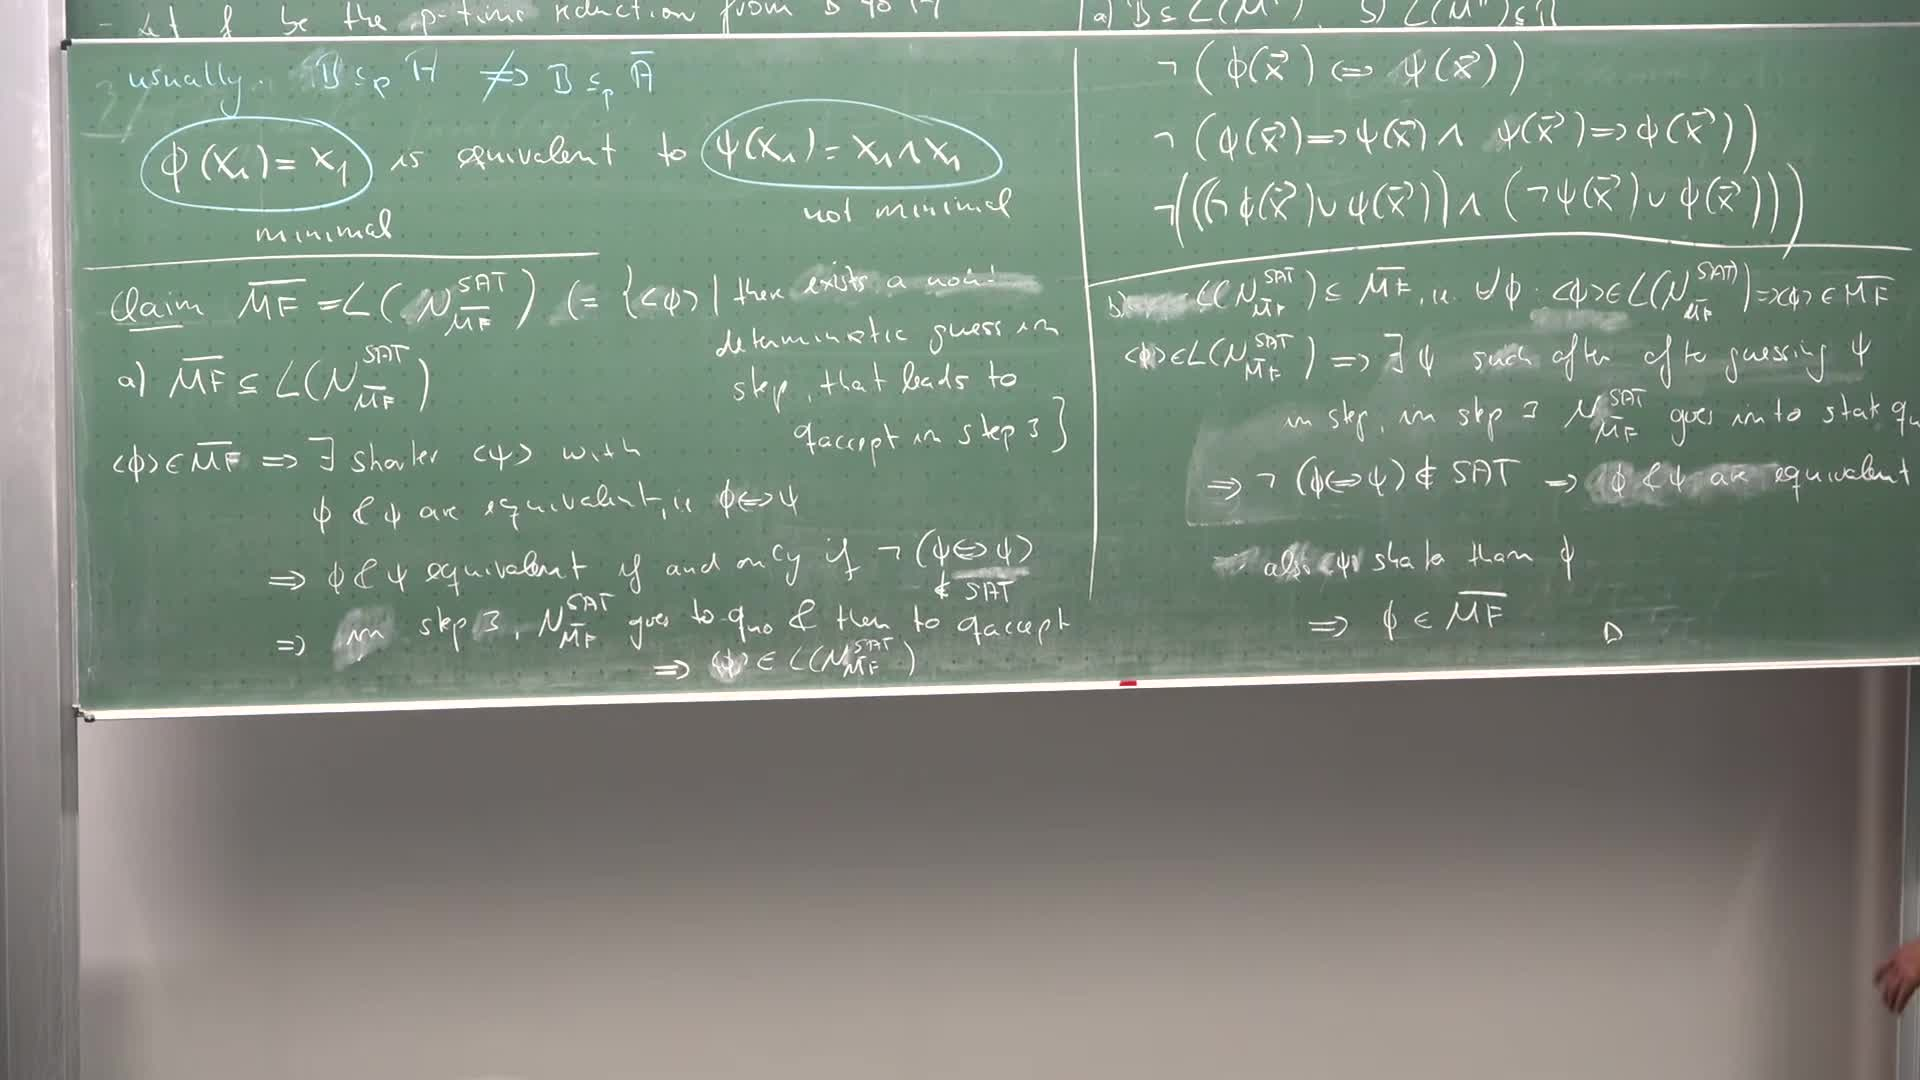 - Let f be the p-time reduction from B to A
a) B ⊆ L(M
usually. B ≤p A ⇏ B ≤p A̅
ϕ(x₁) = x₁ is equivalent to ψ(x₁) = x₁ ∧ x₁
minimal
not minimal
Claim M̅F̅ = L(N_M̅F̅^SAT) (= {<ϕ> | there exists a non-
deterministic guess in
step, that leads to
qaccept in step 3}
a) M̅F̅ ⊆ L(N_M̅F̅^SAT)
<ϕ> ∈ M̅F̅ => ∃ shorter <ψ> with
ϕ & ψ are equivalent, i.e ϕ<=>ψ
=> ϕ & ψ equivalent if and only if ¬(ϕ<=>ψ)
∉ SAT
=> in step 3, N_M̅F̅^SAT goes to qno & then to qaccept
=> <ϕ> ∈ L(N_M̅F̅^SAT)
¬(ϕ(x⃗) <=> ψ(x⃗))
¬(ϕ(x⃗) => ψ(x⃗) ∧ ψ(x⃗) => ϕ(x⃗))
¬((¬ϕ(x⃗) ∨ ψ(x⃗)) ∧ (¬ψ(x⃗) ∨ ϕ(x⃗)))
b) L(N_M̅F̅^SAT) ⊆ M̅F̅, i.e. ∀ϕ: <ϕ> ∈ L(N_M̅F̅^SAT) => <ϕ> ∈ M̅F̅
<ϕ> ∈ L(N_M̅F̅^SAT) => ∃ ψ such after after guessing ψ
in step, in step 3 N_M̅F̅^SAT goes into state
=> ¬(ϕ<=>ψ) ∉ SAT => ϕ & ψ are equivalent
=> also <ψ> shorter than ϕ
=> ϕ ∈ M̅F̅ □